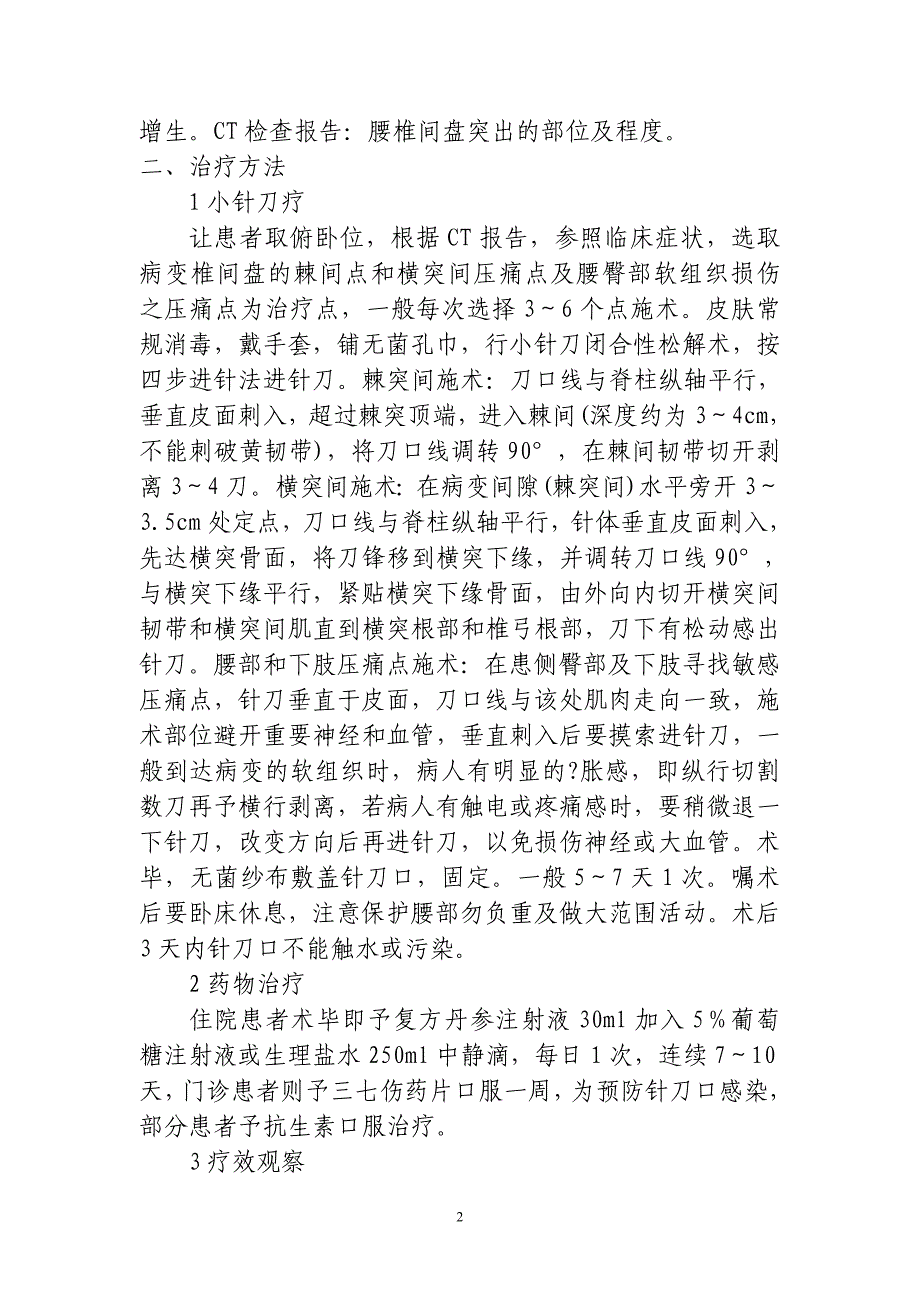 增生。CT 检查报告：腰椎间盘突出的部位及程度。
二、治疗方法
1 小针刀疗
让患者取俯卧位，根据 CT 报告，参照临床症状，选取
病变椎间盘的棘间点和横突间压痛点及腰臀部软组织损伤
之压痛点为治疗点，一般每次选择 3～6 个点施术。皮肤常
规消毒，戴手套，铺无菌孔巾，行小针刀闭合性松解术，按
四步进针法进针刀。棘突间施术：刀口线与脊柱纵轴平行，
垂直皮面刺入，超过棘突顶端，进入棘间(深度约为 3～4cm，
不能刺破黄韧带)，将刀口线调转 90°，在棘间韧带切开剥
离 3～4 刀。横突间施术：在病变间隙(棘突间)水平旁开 3～
3.5cm 处定点，刀口线与脊柱纵轴平行，针体垂直皮面刺入，
先达横突骨面，将刀锋移到横突下缘，并调转刀口线 90°，
与横突下缘平行，紧贴横突下缘骨面，由外向内切开横突间
韧带和横突间肌直到横突根部和椎弓根部，刀下有松动感出
针刀。腰部和下肢压痛点施术：在患侧臀部及下肢寻找敏感
压痛点，针刀垂直于皮面，刀口线与该处肌肉走向一致，施
术部位避开重要神经和血管，垂直刺入后要摸索进针刀，一
般到达病变的软组织时，病人有明显的?胀感，即纵行切割
数刀再予横行剥离，若病人有触电或疼痛感时，要稍微退一
下针刀，改变方向后再进针刀，以免损伤神经或大血管。术
毕，无菌纱布敷盖针刀口，固定。一般 5～7 天 1 次。嘱术
后要卧床休息，注意保护腰部勿负重及做大范围活动。术后
3 天内针刀口不能触水或污染。
2 药物治疗
住院患者术毕即予复方丹参注射液 30ml 加入 5%葡萄
糖注射液或生理盐水 250ml 中静滴，每日 1 次，连续 7～10
天，门诊患者则予三七伤药片口服一周，为预防针刀口感染，
部分患者予抗生素口服治疗。
3 疗效观察
2